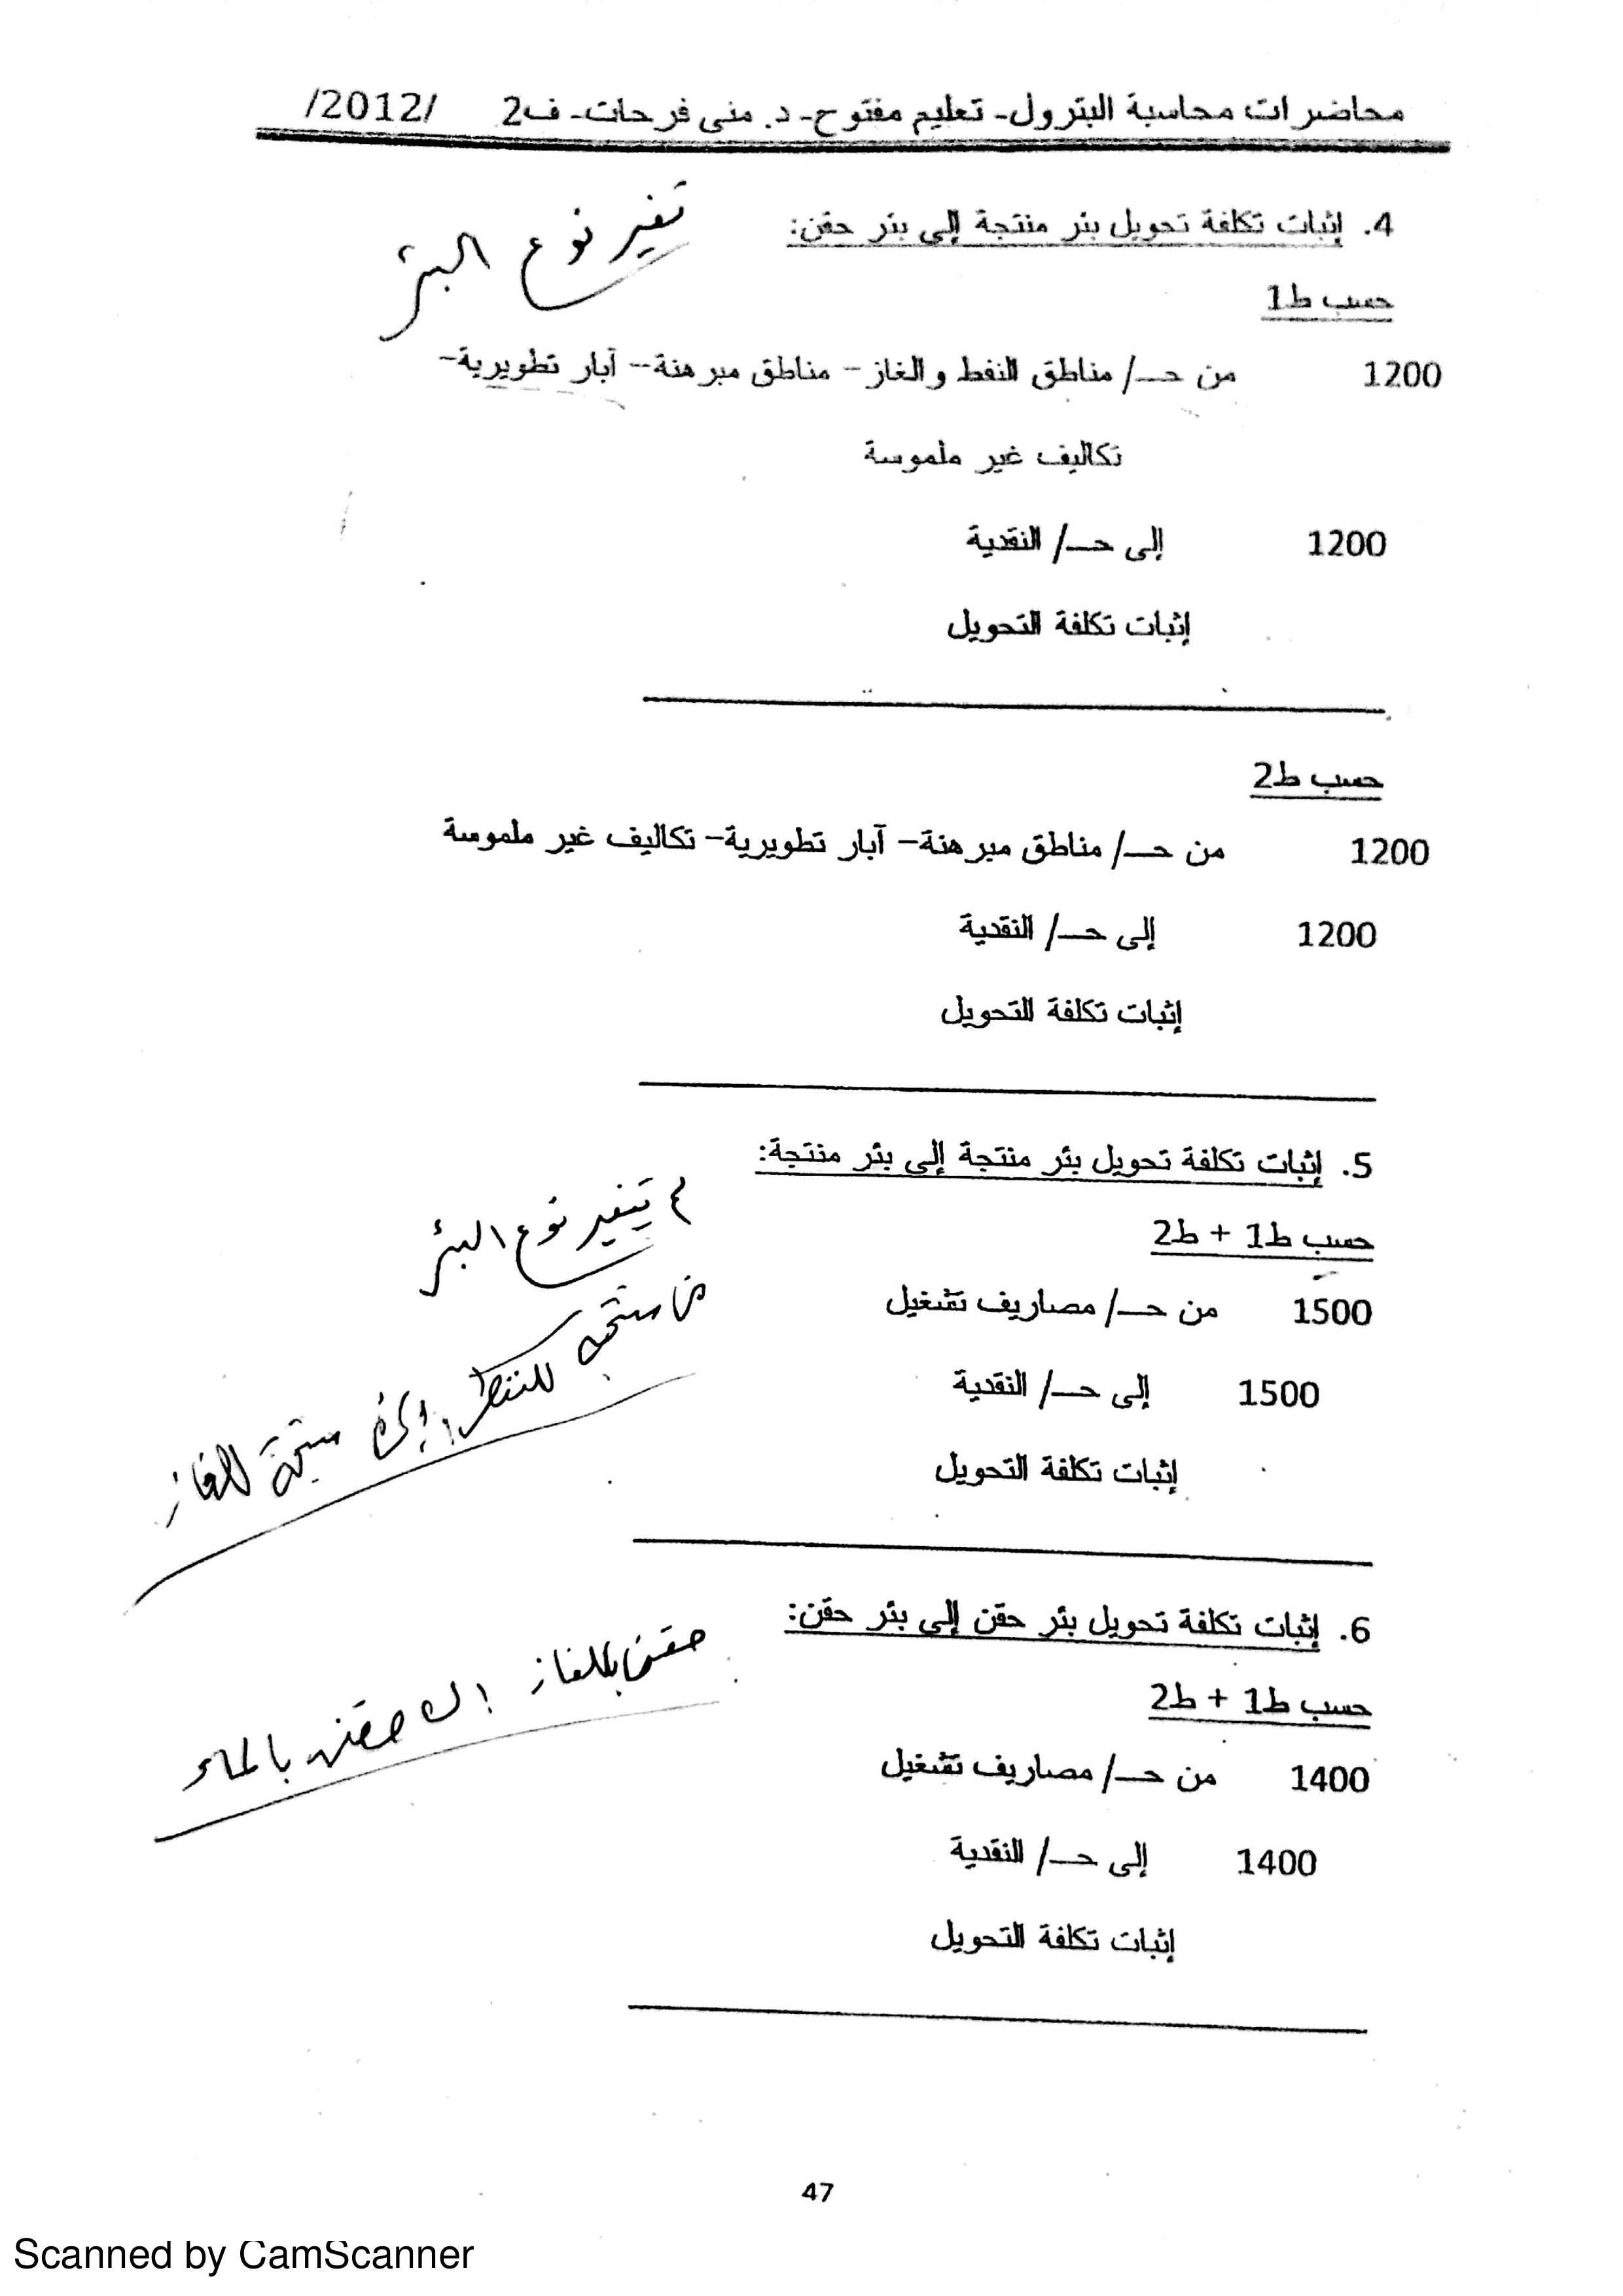 محاضرات محاسبة البترول- تعليم مفتوح- د. منى فرحات- ف2 /2012/
4. إثبات تكلفة تحويل بئر منتجة إلى بئر حقن:
تغير نوع البئر
حسب ط1
1200 من حـ/ مناطق النفط والغاز- مناطق مبرهنة- آبار تطويرية-
تكاليف غير ملموسة
1200 إلى حـ/ النقدية
إثبات تكلفة التحويل
حسب ط2
1200 من حـ/ مناطق مبرهنة- آبار تطويرية- تكاليف غير ملموسة
1200 إلى حـ/ النقدية
إثبات تكلفة التحويل
5. إثبات تكلفة تحويل بئر منتجة إلى بئر منتجة:
لم يتغير نوع البئر
حسب ط1 + ط2
من منتجة للنفط إلى منتجة للغاز
1500 من حـ/ مصاريف تشغيل
1500 إلى حـ/ النقدية
إثبات تكلفة التحويل
6. إثبات تكلفة تحويل بئر حقن إلى بئر حقن:
حقن بالغاز إلى حقن بالماء
حسب ط1 + ط2
1400 من حـ/ مصاريف تشغيل
1400 إلى حـ/ النقدية
إثبات تكلفة التحويل
47
Scanned by CamScanner